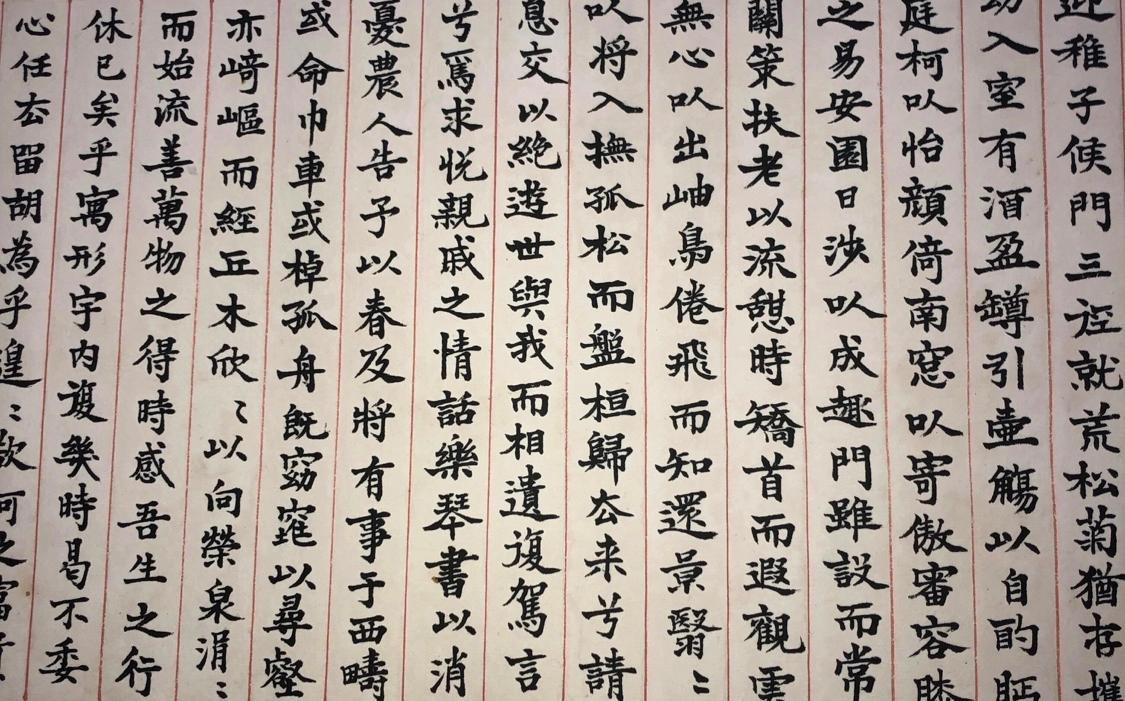 迎稚子候門三迳就荒松菊猶存攜
幼入室有酒盈罇引壺觴以自酌眄
庭柯以怡顏倚南窓以寄傲審容膝
之易安園日涉以成趣門雖設而常
關策扶老以流憩時矯首而遐觀雲
無心以出岫鳥倦飛而知還景翳〻
以将入撫孤松而盤桓歸去来兮請
息交以絶遊世與我而相遺復駕言
兮焉求悅親戚之情話樂琴書以消
憂農人告予以春及將有事于西疇
或命巾車或棹孤舟既窈窕以尋壑
亦崎嶇而經丘木欣〻以向榮泉涓〻
而始流善萬物之得時感吾生之行
休已矣乎寓形宇内復幾時曷不委
心任去留胡為乎遑〻欲何之富貴